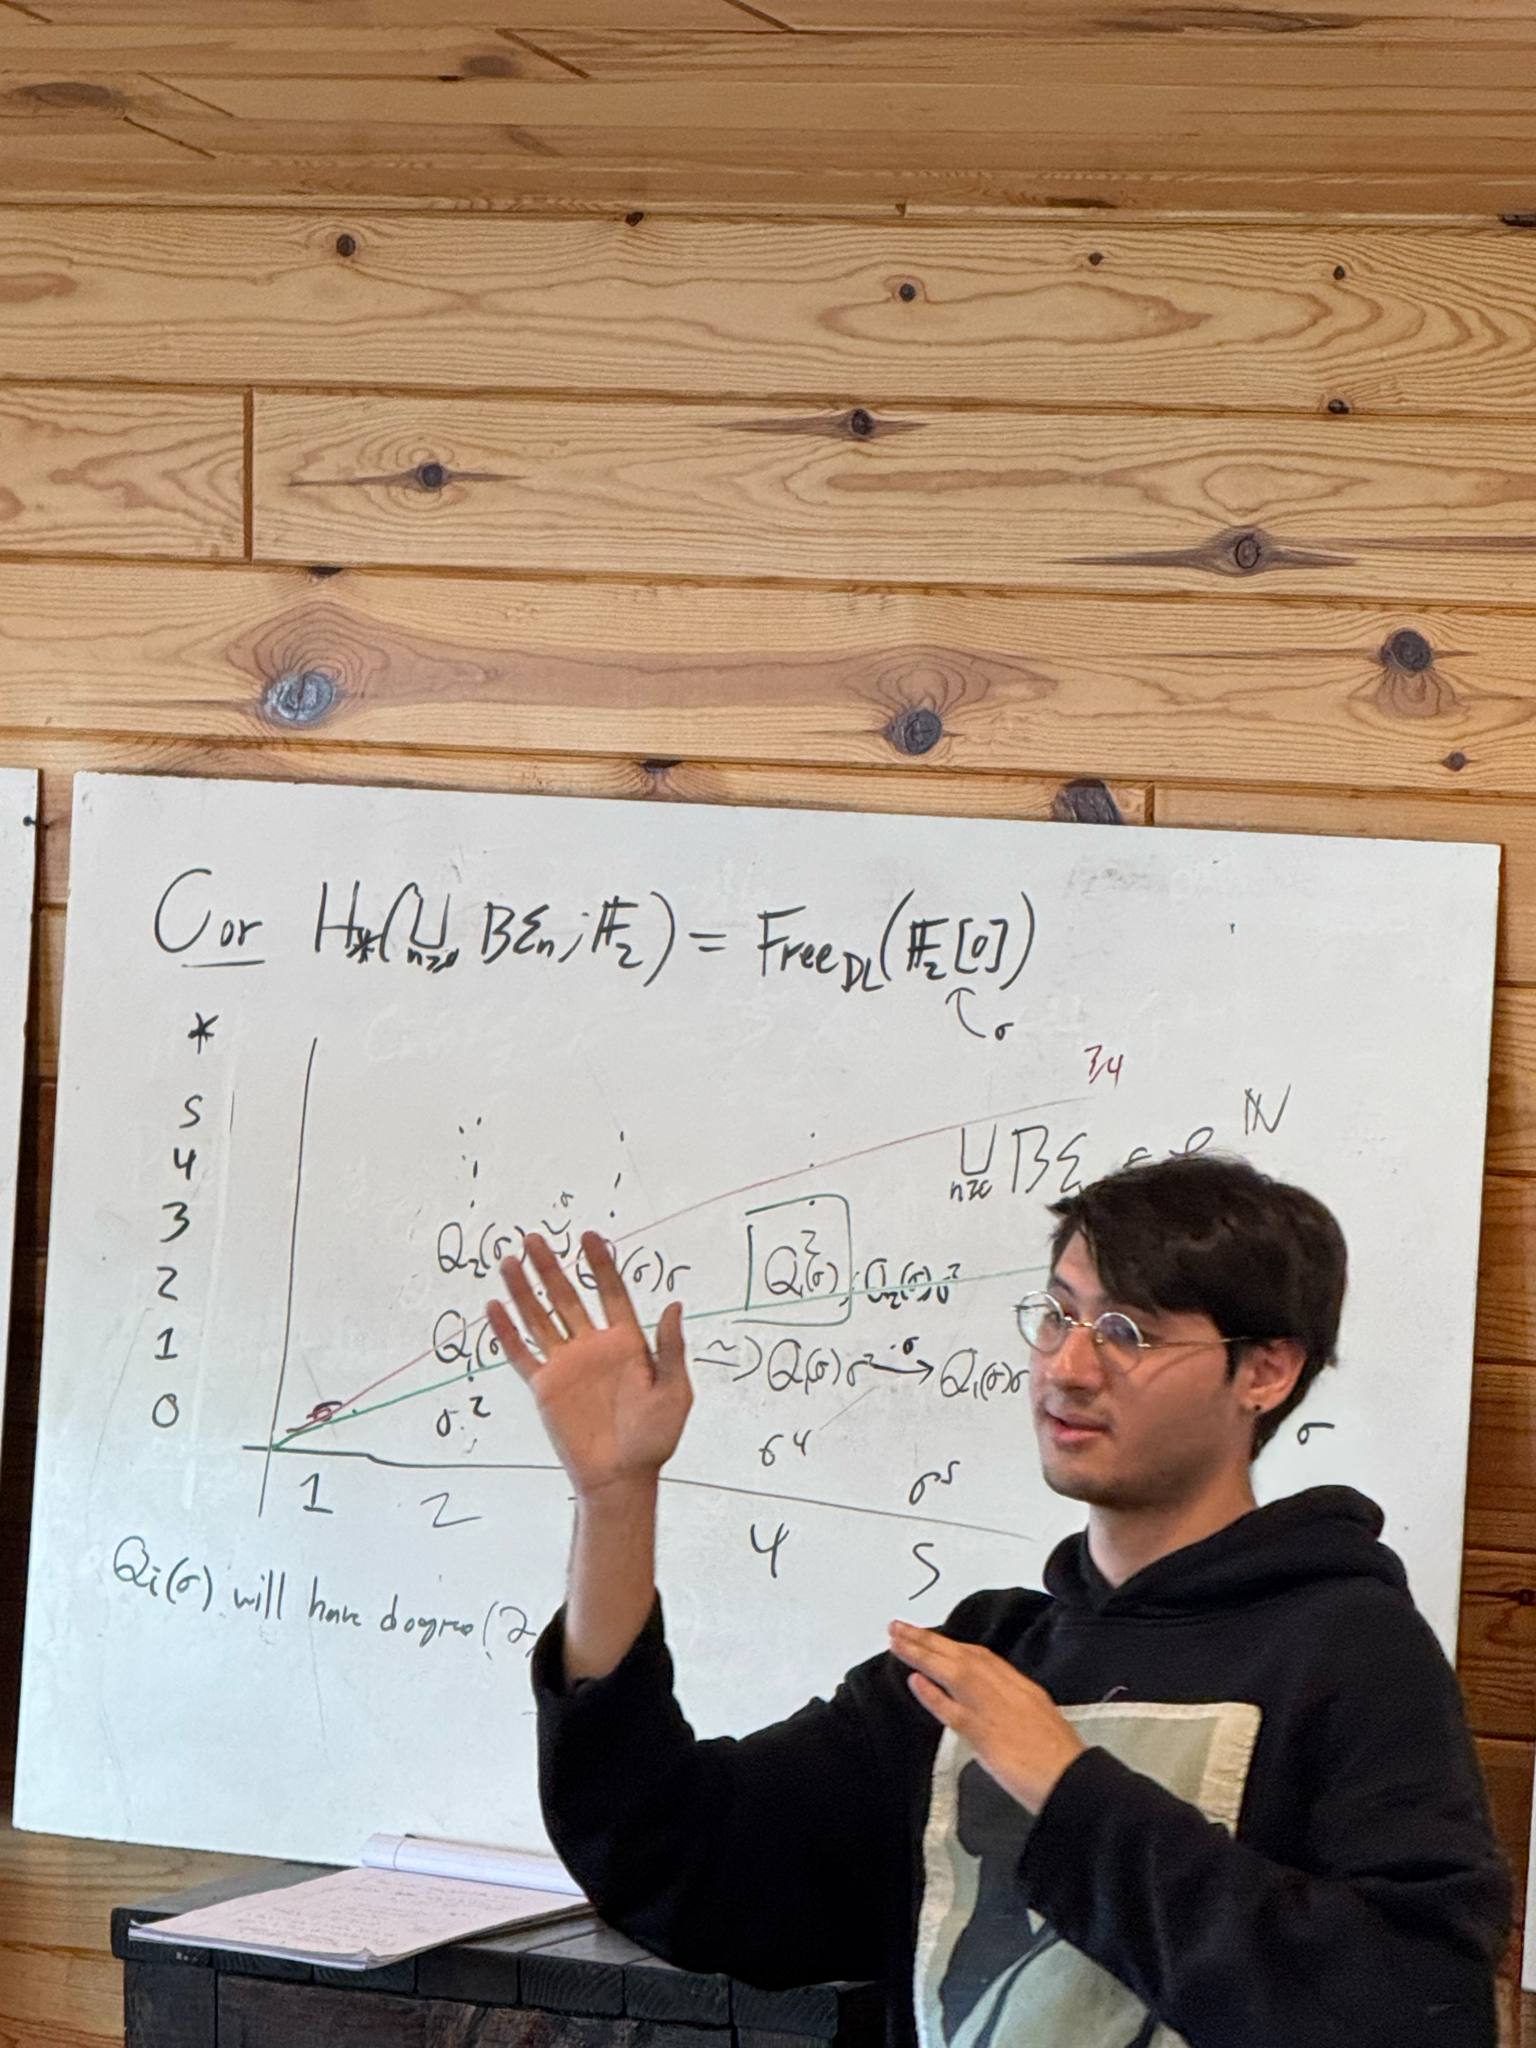 Cor H_*(⊔_{n≥0} BΣ_n; F_2) = Free_{DL}(F_2[σ])
σ
*
3/4
5
N
4
⊔_{n≥0} BΣ
3
σ
2
Q_2(σ)
(σ)σ
Q_1^2(σ), Q_2(σ)σ^2
1
Q_1(σ
~
Q_1(σ)σ^2 →^{·σ} Q_1(σ)σ
0
σ^2
σ^4
σ^5
σ
1 2 4 5
Q_i(σ) will have degree (2,